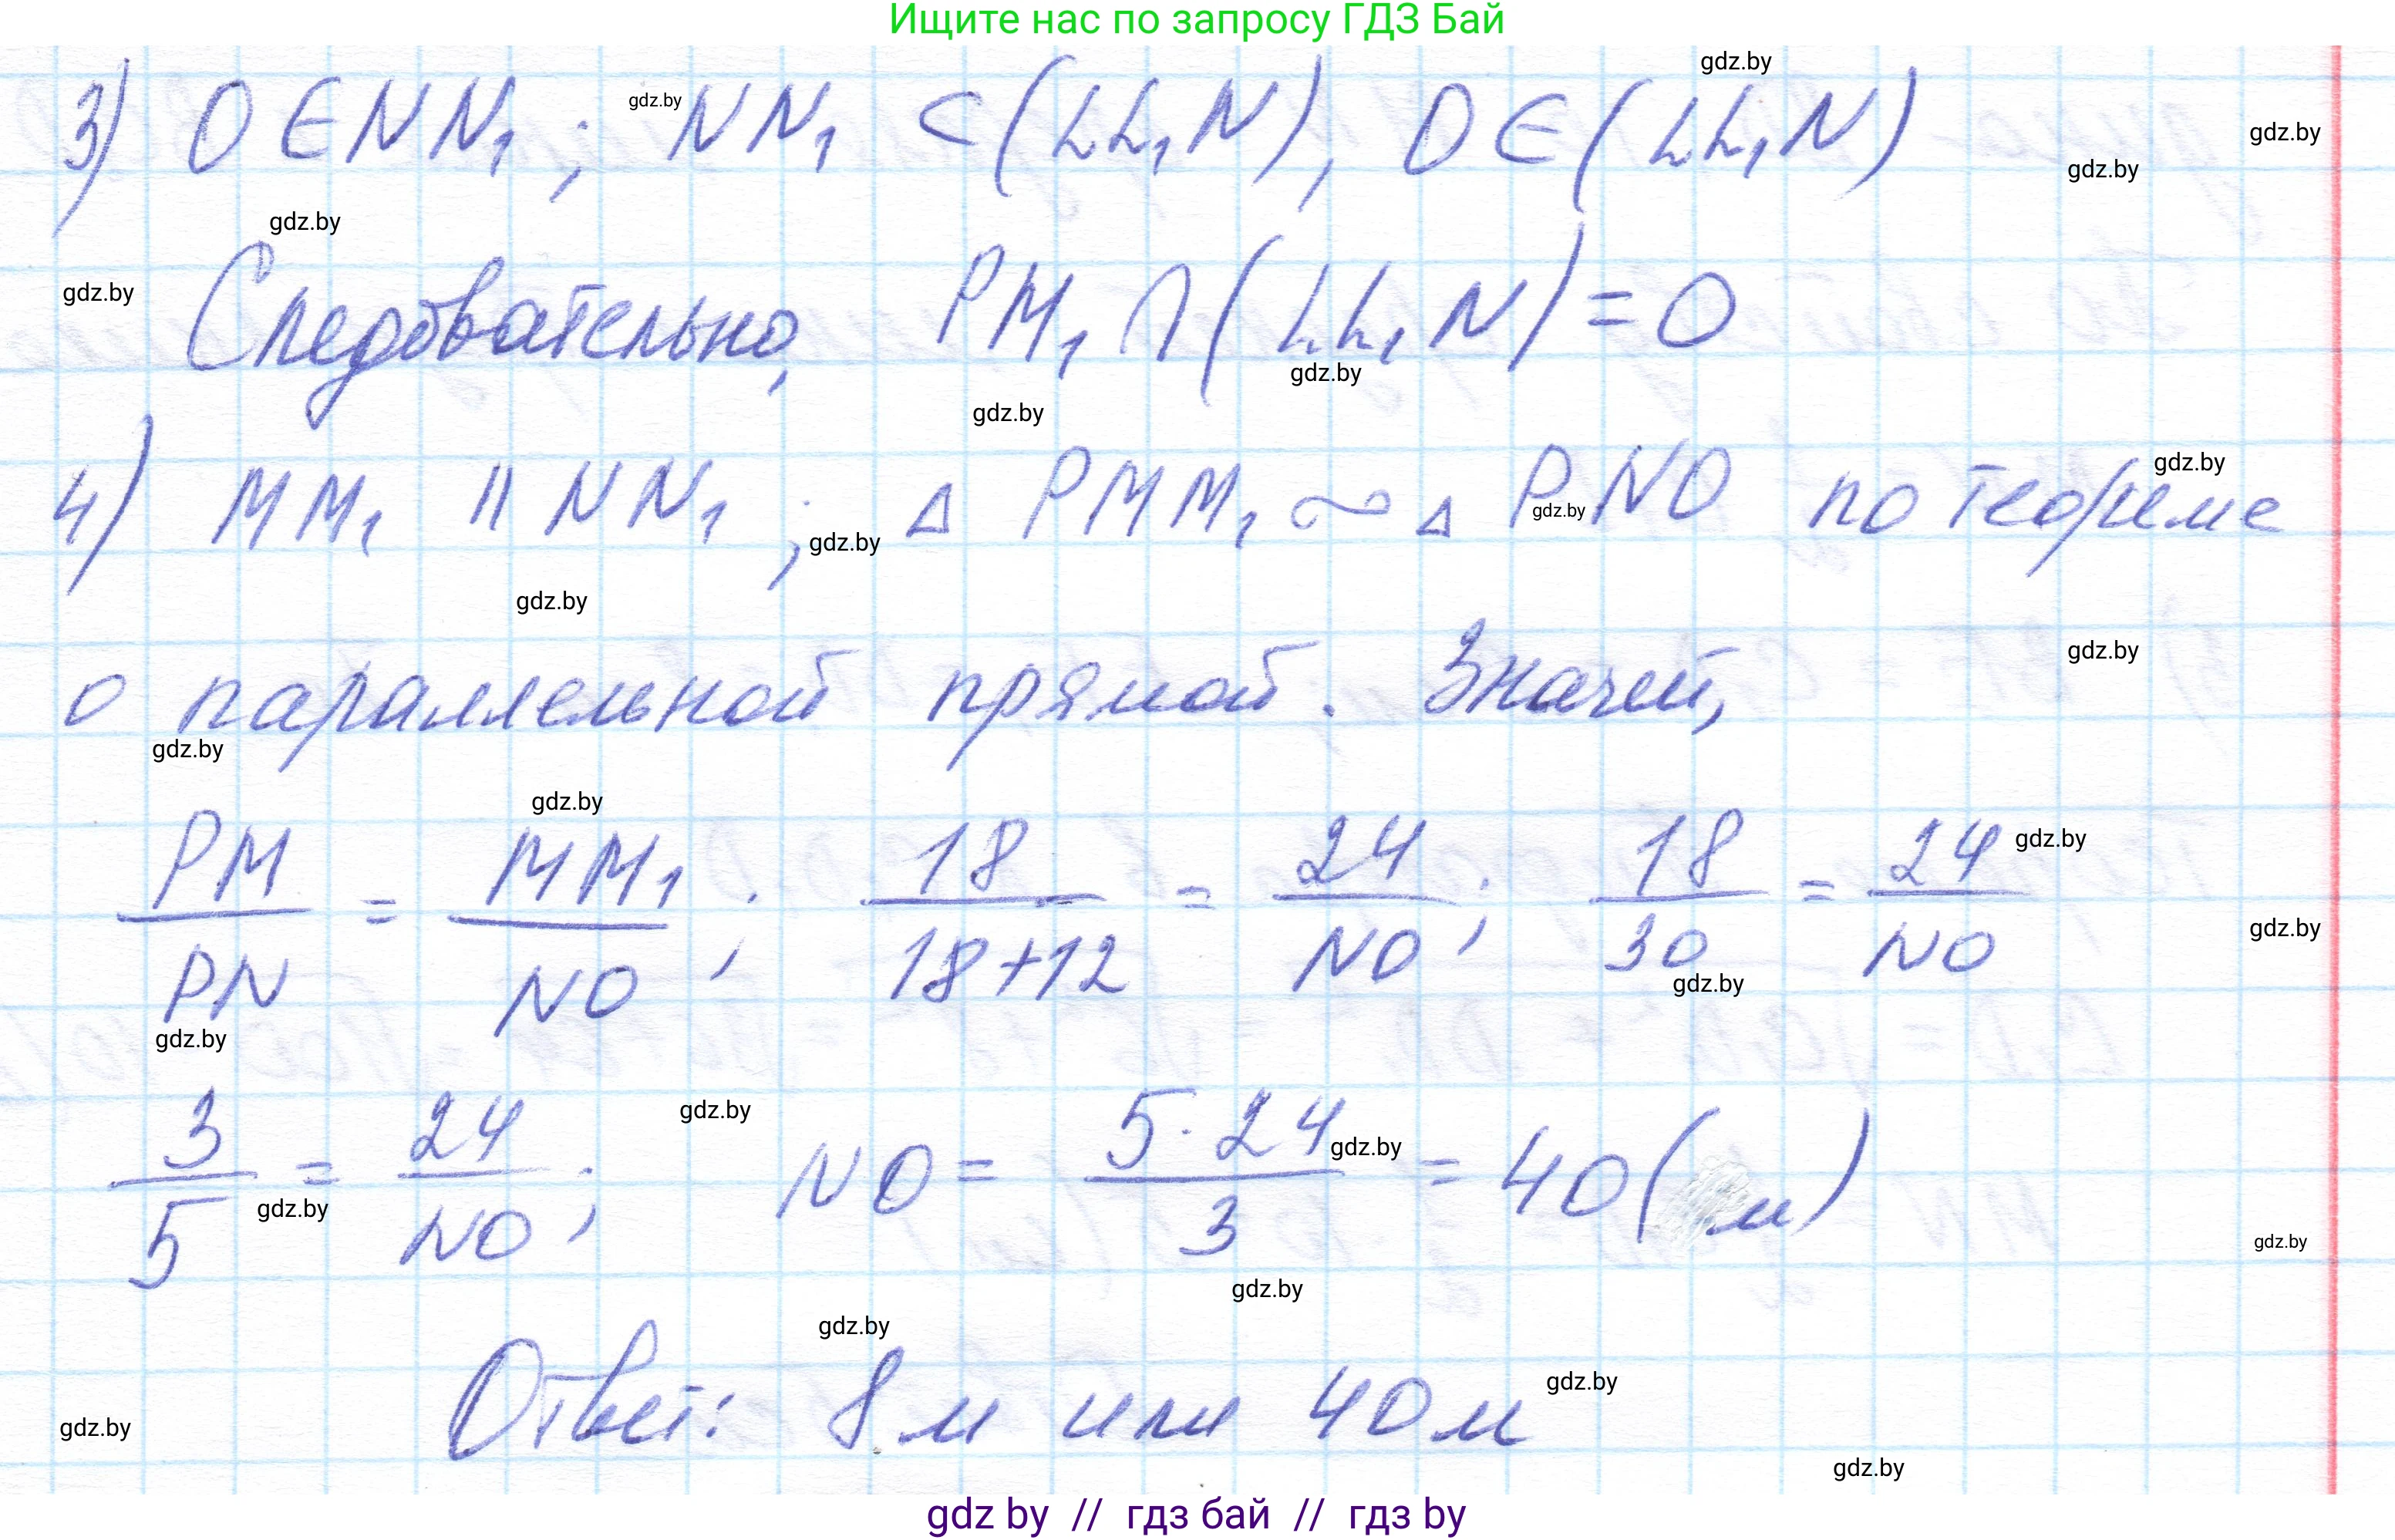 Ищите нас по запросу ГДЗ Бай
gdz.by
3) O ∈ NN₁; NN₁ ⊂ (LL₁N), O ∈ (LL₁N)
gdz.by
gdz.by
gdz.by
gdz.by
Следовательно, PM₁ ∩ (LL₁N) = O
gdz.by
gdz.by
gdz.by
4) MM₁ || NN₁; △ PMM₁ ~ △ PNO по теореме
gdz.by
gdz.by
gdz.by
gdz.by
о параллельной прямой. Значит,
gdz.by
gdz.by
gdz.by
PM/PN = MM₁/NO; 18/(18+12) = 24/NO; 18/30 = 24/NO
gdz.by
gdz.by
gdz.by
gdz.by
3/5 = 24/NO; NO = (5·24)/3 = 40 (м)
gdz.by
gdz.by
gdz.by
gdz.by
gdz.by
gdz.by
Ответ: 8 м или 40 м
gdz.by
gdz.by
gdz.by
gdz by // гдз бай // гдз by